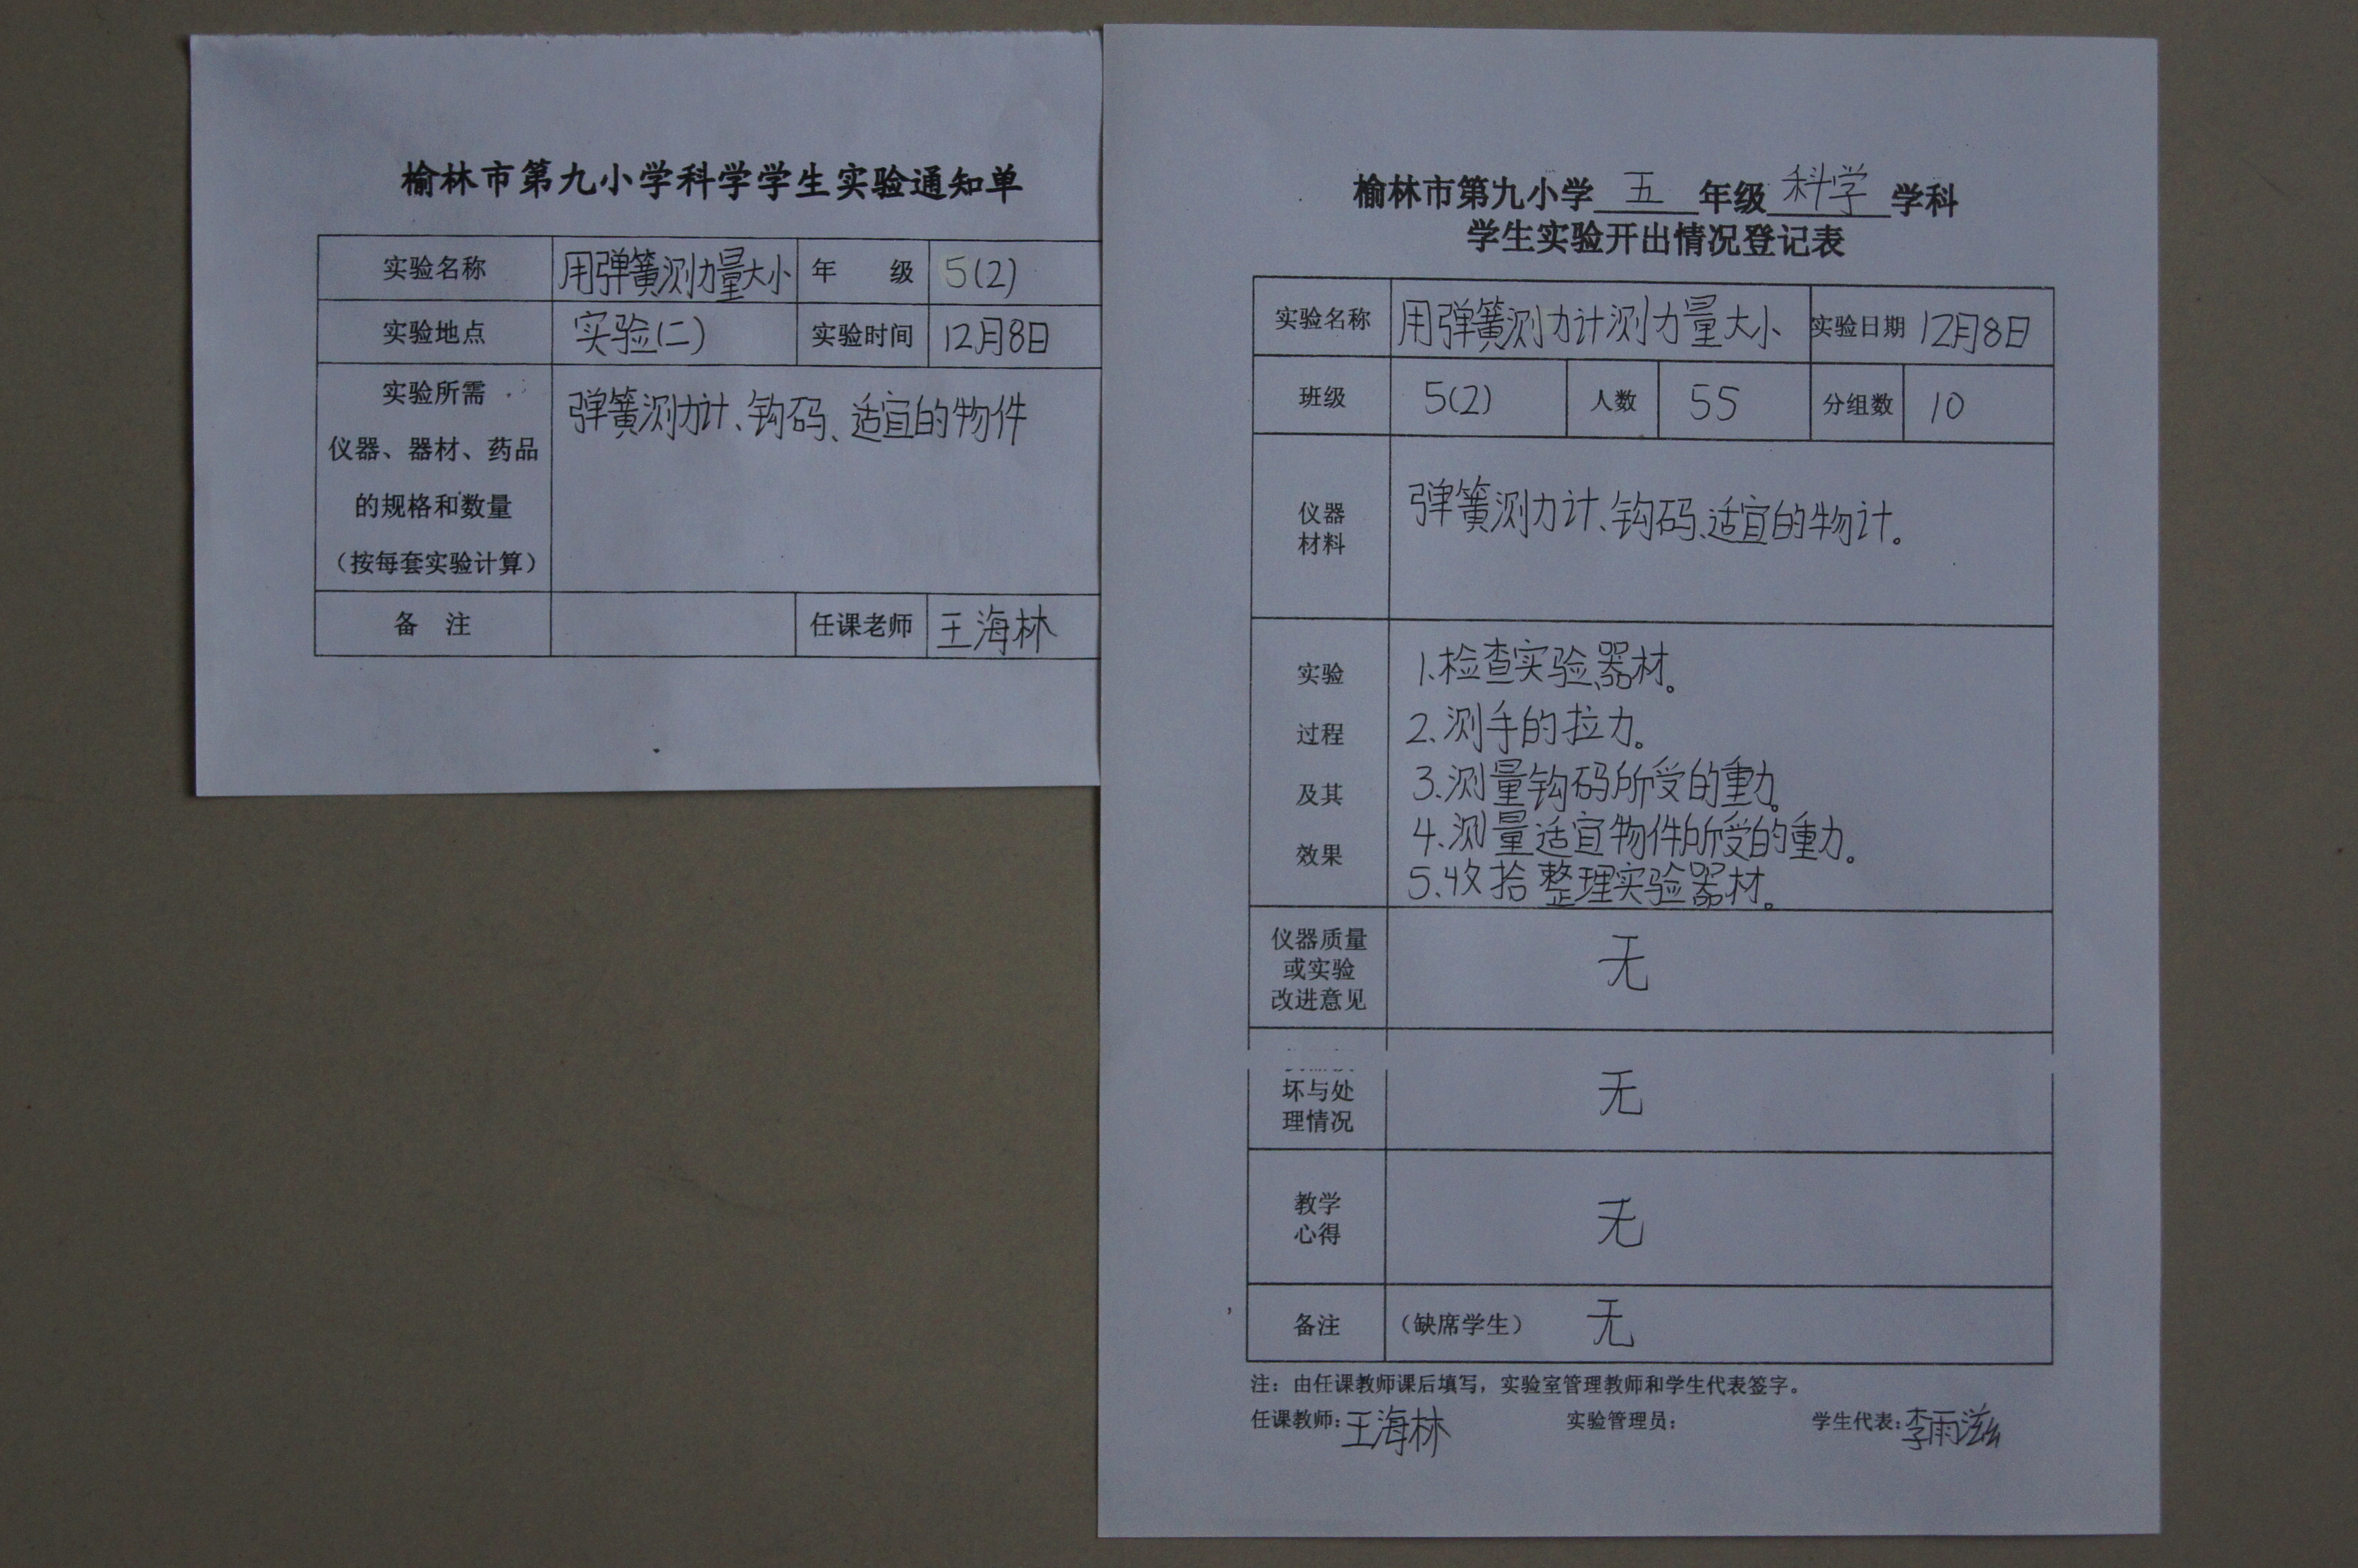 榆林市第九小学科学学生实验通知单
实验名称 用弹簧测力量大小 年 级 5(2)
实验地点 实验(二) 实验时间 12月8日
实验所需
仪器、器材、药品
的规格和数量
（按每套实验计算）
弹簧测力计、钩码、适宜的物件
备 注 任课老师 王海林
榆林市第九小学 五 年级 科学 学科
学生实验开出情况登记表
实验名称 用弹簧测力计测力量大小 实验日期 12月8日
班级 5(2) 人数 55 分组数 10
仪器
材料
弹簧测力计、钩码、适宜的物计。
实验
过程
及其
效果
1、检查实验器材。
2、测手的拉力。
3、测量钩码所受的重力。
4、测量适宜物件所受的重力。
5、收拾整理实验器材。
仪器质量
或实验
改进意见
无
坏与处
理情况
无
教学
心得
无
备注 （缺席学生） 无
注：由任课教师课后填写，实验室管理教师和学生代表签字。
任课教师：王海林 实验管理员： 学生代表：李雨滋